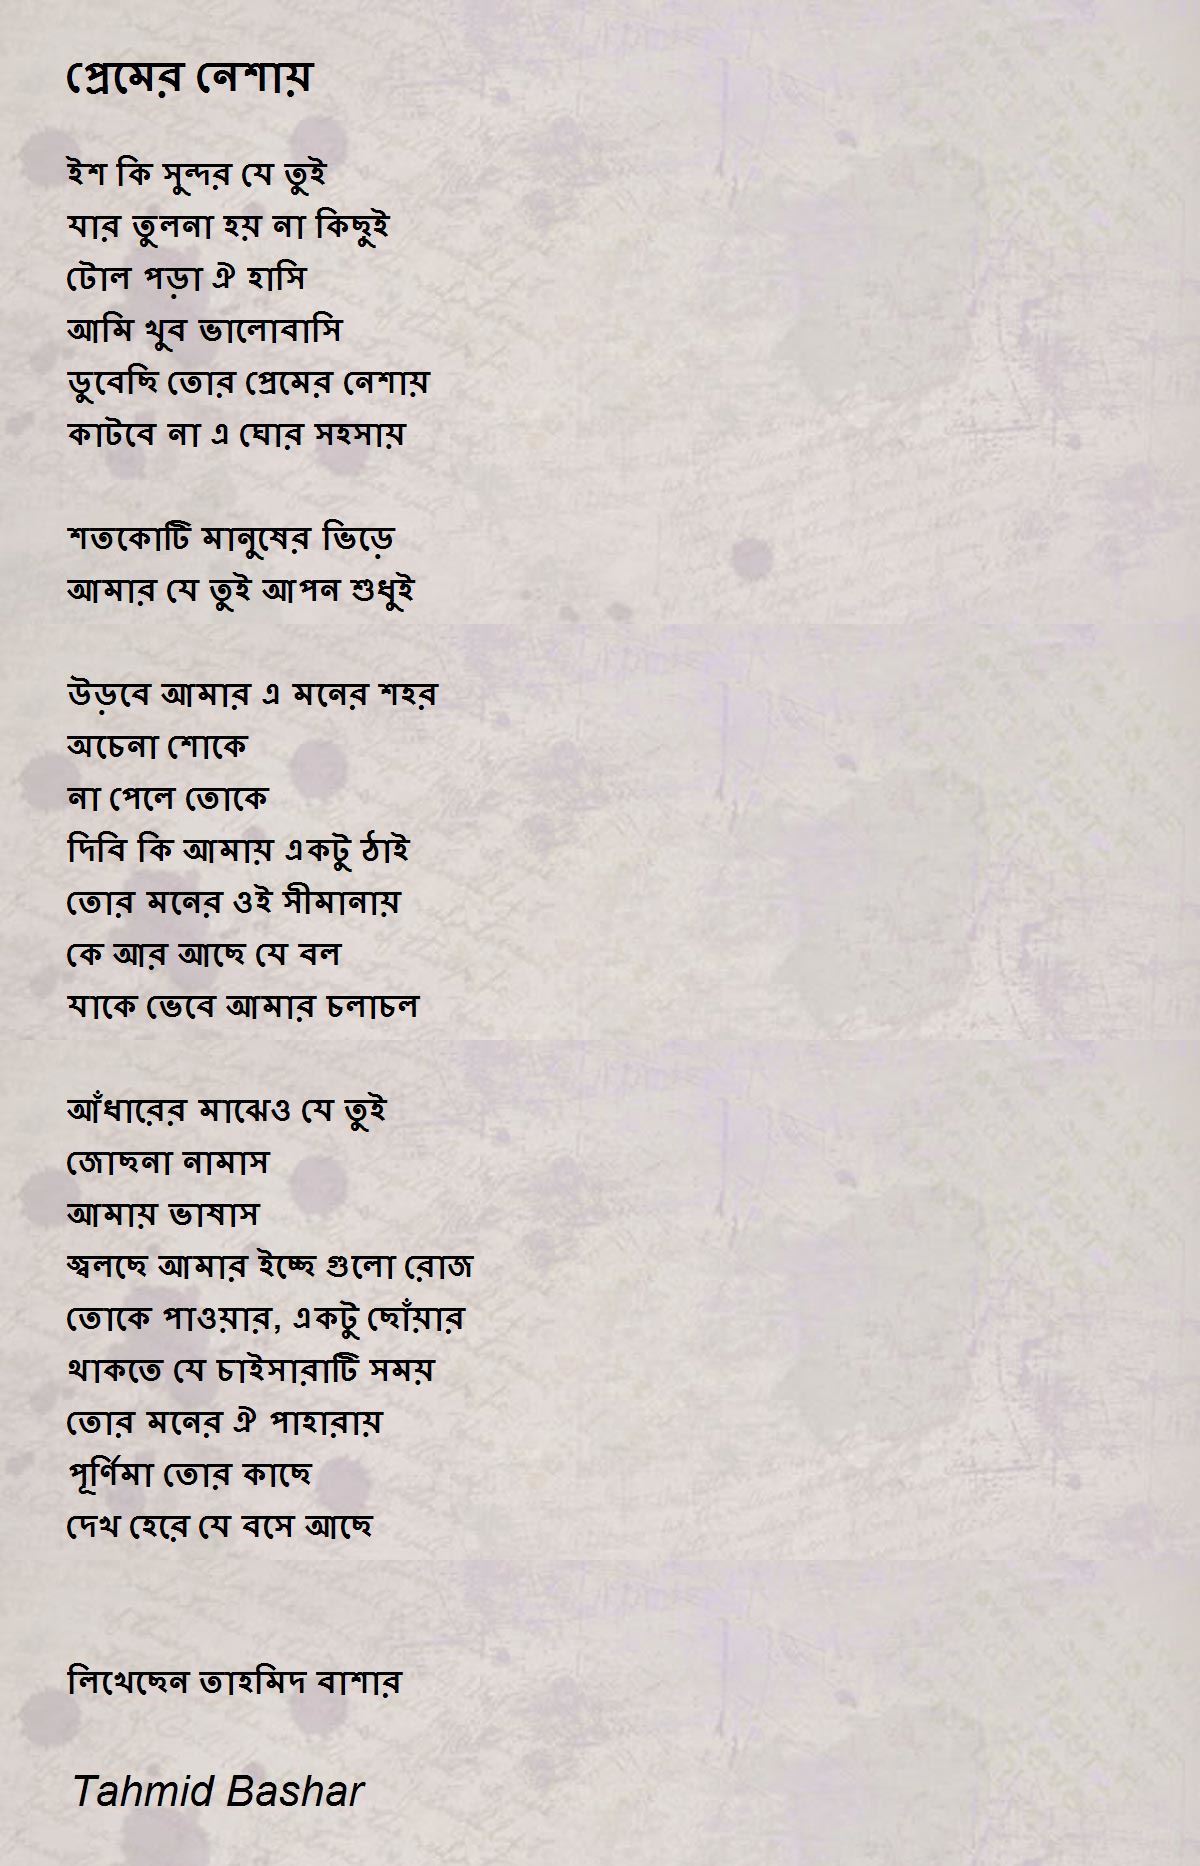 প্রেমের নেশায়
ইশ কি সুন্দর যে তুই
যার তুলনা হয় না কিছুই
টোল পড়া ঐ হাসি
আমি খুব ভালোবাসি
ডুবেছি তোর প্রেমের নেশায়
কাটবে না এ ঘোর সহসায়
শতকোটি মানুষের ভিড়ে
আমার যে তুই আপন শুধুই
উড়বে আমার এ মনের শহর
অচেনা শোকে
না পেলে তোকে
দিবি কি আমায় একটু ঠাই
তোর মনের ওই সীমানায়
কে আর আছে যে বল
যাকে ভেবে আমার চলাচল
আঁধারের মাঝেও যে তুই
জোছনা নামাস
আমায় ভাষাস
জ্বলছে আমার ইচ্ছে গুলো রোজ
তোকে পাওয়ার, একটু ছোঁয়ার
থাকতে যে চাইসারাটি সময়
তোর মনের ঐ পাহারায়
পূর্ণিমা তোর কাছে
দেখ হেরে যে বসে আছে
লিখেছেন তাহমিদ বাশার
Tahmid Bashar